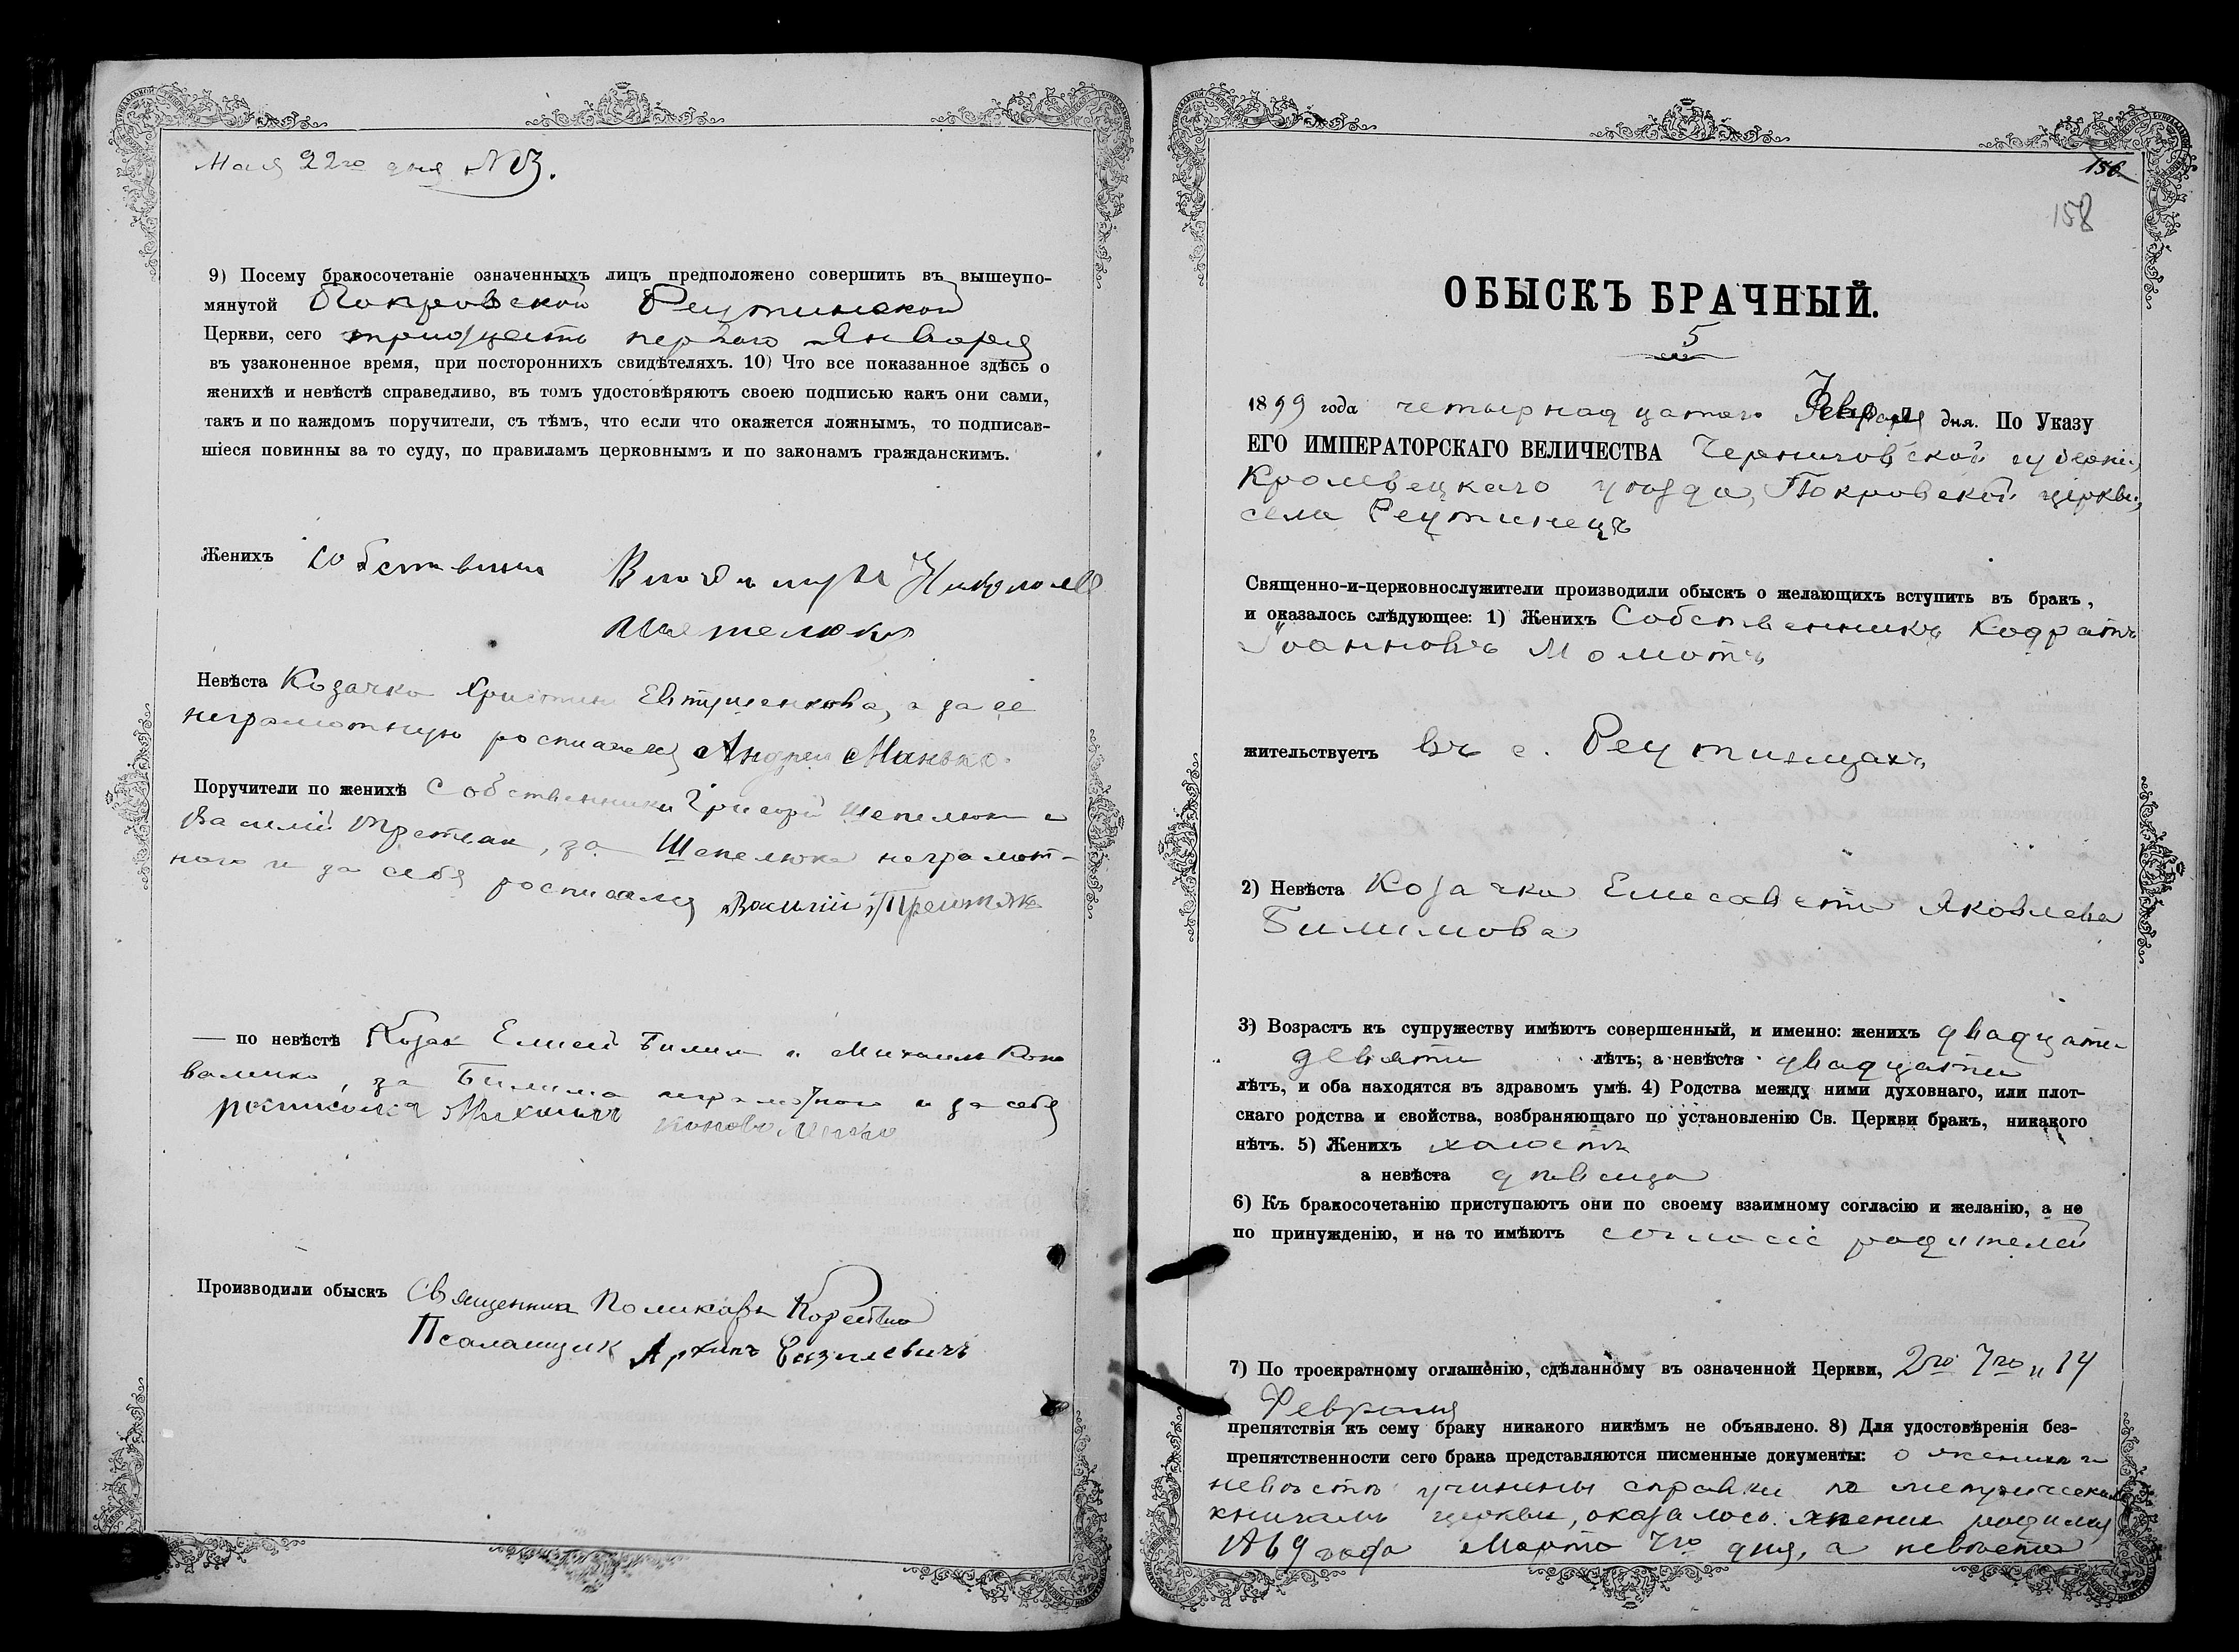 Мая 22го дня №3.
9) Посему бракосочетаніе означенныхъ лицъ предположено совершить въ вышеупо-
мянутой Покровской Реутинской
Церкви, сего тридцать перваго Января
въ узаконенное время, при постороннихъ свидѣтеляхъ. 10) Что все показанное здѣсь о
женихѣ и невѣстѣ справедливо, въ томъ удостовѣряютъ своею подписью какъ они сами,
такъ и по каждомъ поручители, съ тѣмъ, что если что окажется ложнымъ, то подписав-
шіеся повинны за то суду, по правиламъ церковнымъ и по законамъ гражданскимъ.
Женихъ собственни Владимиръ Николаев
Невѣста Козачка Христин Евтушенкова, а за ее
неграмотную росписался Андрей Манько.
Поручители по женихѣ Собственники Григорій Шепелюк и
Василій , за Шепелюка неграмот-
ного и за себя росписался Василій
— по невѣстѣ Козак Елисей Билим и Михаил Коно
валенко, за Билима неграмотного и за себя
росписался Михаилъ Коноваленко
Производили обыскъ Священник Поликарп
Псаломщик Архипъ
156.
158
ОБЫСКЪ БРАЧНЫЙ.
5
1899 года четырнадцатого Февраля дня. По Указу
ЕГО ИМПЕРАТОРСКАГО ВЕЛИЧЕСТВА Черниговской губерніи,
Кролевецкаго уѣзда, Покровской церкви,
села Реутинецъ
Священно-и-церковнослужители производили обыскъ о желающихъ вступить въ бракъ,
и оказалось слѣдующее: 1) Женихъ Собственникъ Кодратъ
Іоанновъ Момотъ
жительствуетъ въ с. Реутинцахъ
2) Невѣста Козачка Елисавета Яковлева
Билимова
3) Возрастъ къ супружеству имѣютъ совершенный, и именно: женихъ двадцати
девяти лѣтъ; а невѣста двадцати
лѣтъ, и оба находятся въ здравомъ умѣ. 4) Родства между ними духовнаго, или плот-
скаго родства и свойства, возбраняющаго по установленію Св. Церкви бракъ, никакого
нѣтъ. 5) Женихъ холостъ
а невѣста дѣвица
6) Къ бракосочетанію приступаютъ они по своему взаимному согласію и желанію, а не
по принужденію, и на то имѣютъ согласіе родителей
7) По троекратному оглашенію, сдѣланному въ означенной Церкви, 2го 7го и 14
Февраля
препятствія къ сему браку никакого никѣмъ не объявлено. 8) Для удостовѣренія без-
препятственности сего брака представляются писменные документы: о женихѣ и
невѣстѣ учинены справки по метрическим
книгамъ церкви, оказалось: жених родился
1869 года Марта 7го дня, а невѣста